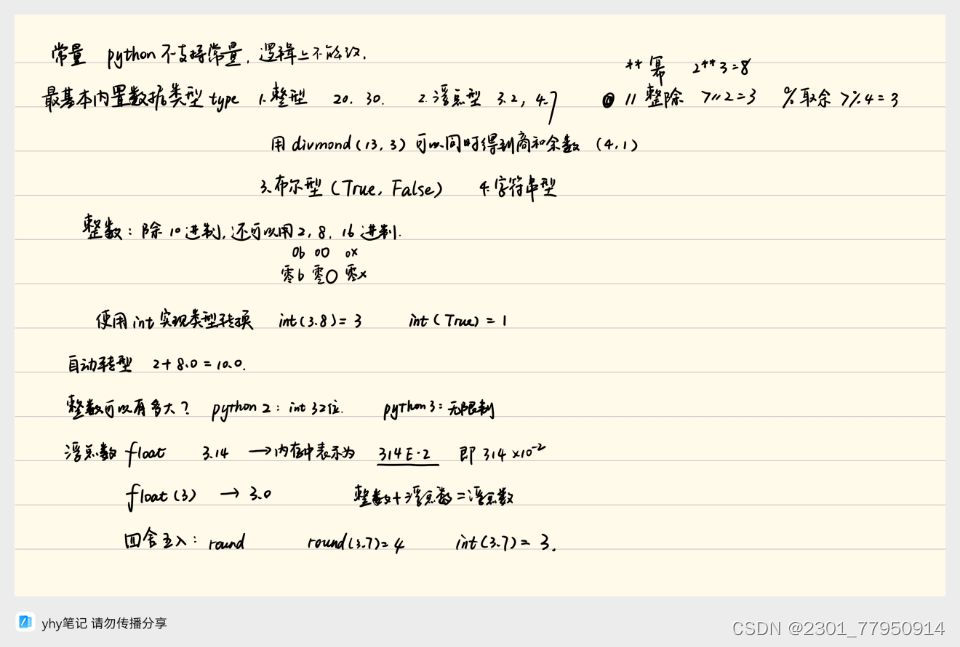 常量 python不支持常量，逻辑上不能改.
**幂 2**3=8
最基本内置数据类型 type 1.整型 20. 30. 2.浮点型 3.2, 4.7
// 整除 7//2=3 %取余 7%4=3
用 divmond(13,3) 可以同时得到商和余数 (4,1)
3.布尔型 (True, False) 4.字符串型
整数：除10进制，还可以用2, 8, 16进制.
0b 0O 0x
零b 零O 零x
使用int实现类型转换 int(3.8)=3 int(True)=1
自动转型 2+8.0=10.0.
整数可以有多大？ python2：int 32位. python3：无限制
浮点数 float 3.14 →内存中表示为 314E-2 即 314×10⁻²
float(3) → 3.0 整数+浮点数=浮点数
四舍五入：round round(3.7)=4 int(3.7)=3.
yhy笔记 请勿传播分享
CSDN @2301_77950914